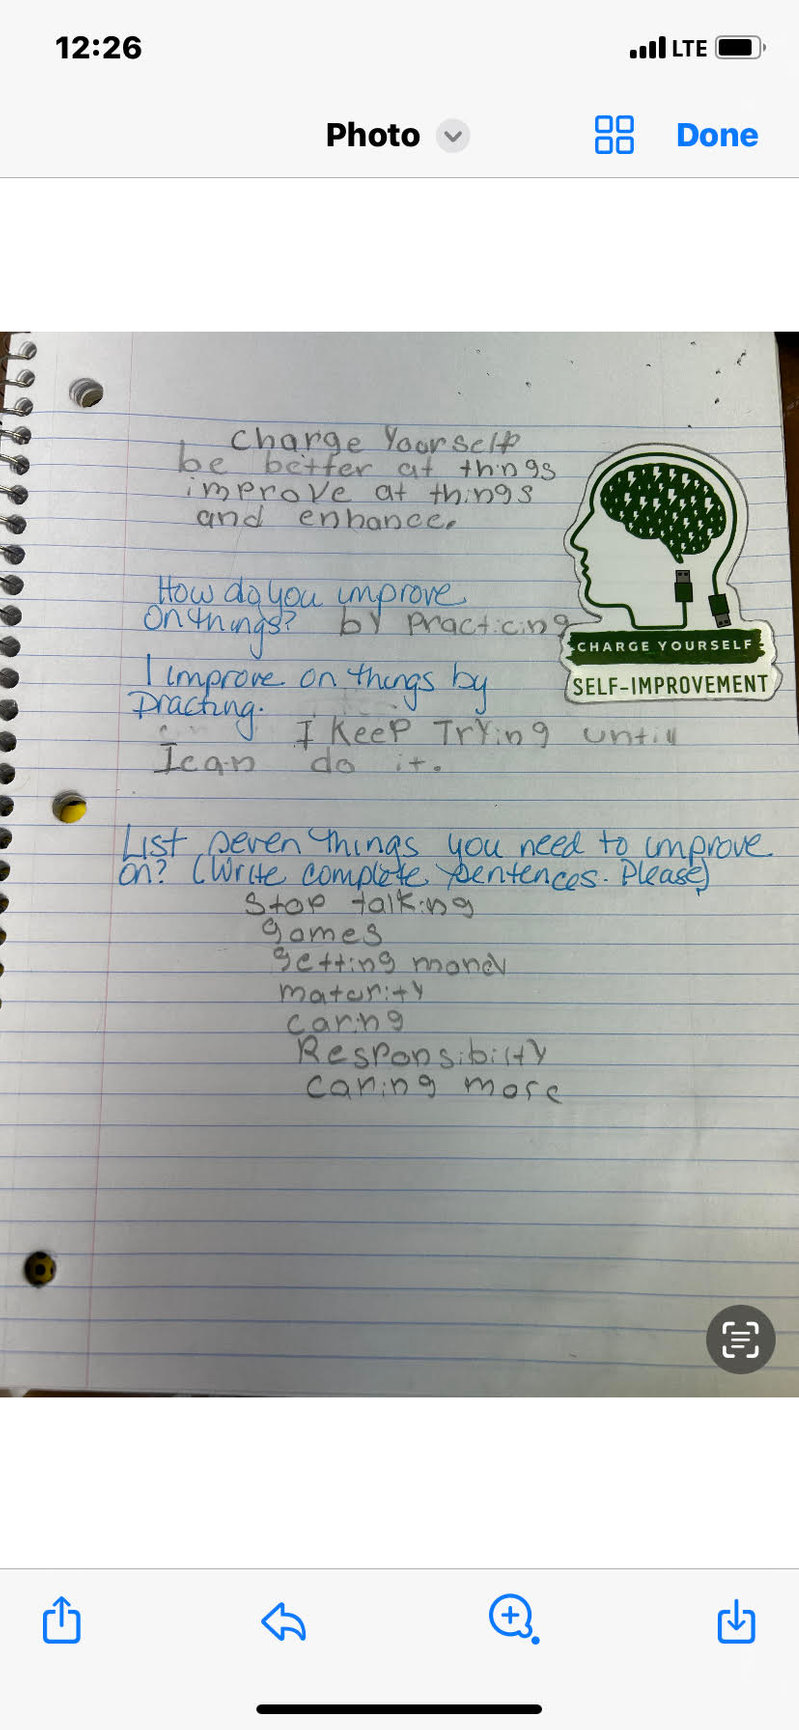 12:26
LTE
Photo
Done
Charge Yourself
be better at things
improve at things
and enhance.
How do you improve
on things? by practicing
CHARGE YOURSELF
I improve on things by
SELF-IMPROVEMENT
Practing.
I Keep Trying until
I can do it.
List seven things you need to improve
on? (Write complete sentences. Please)
Stop talking
games
getting money
maturity
caring
Responsibilty
caring more